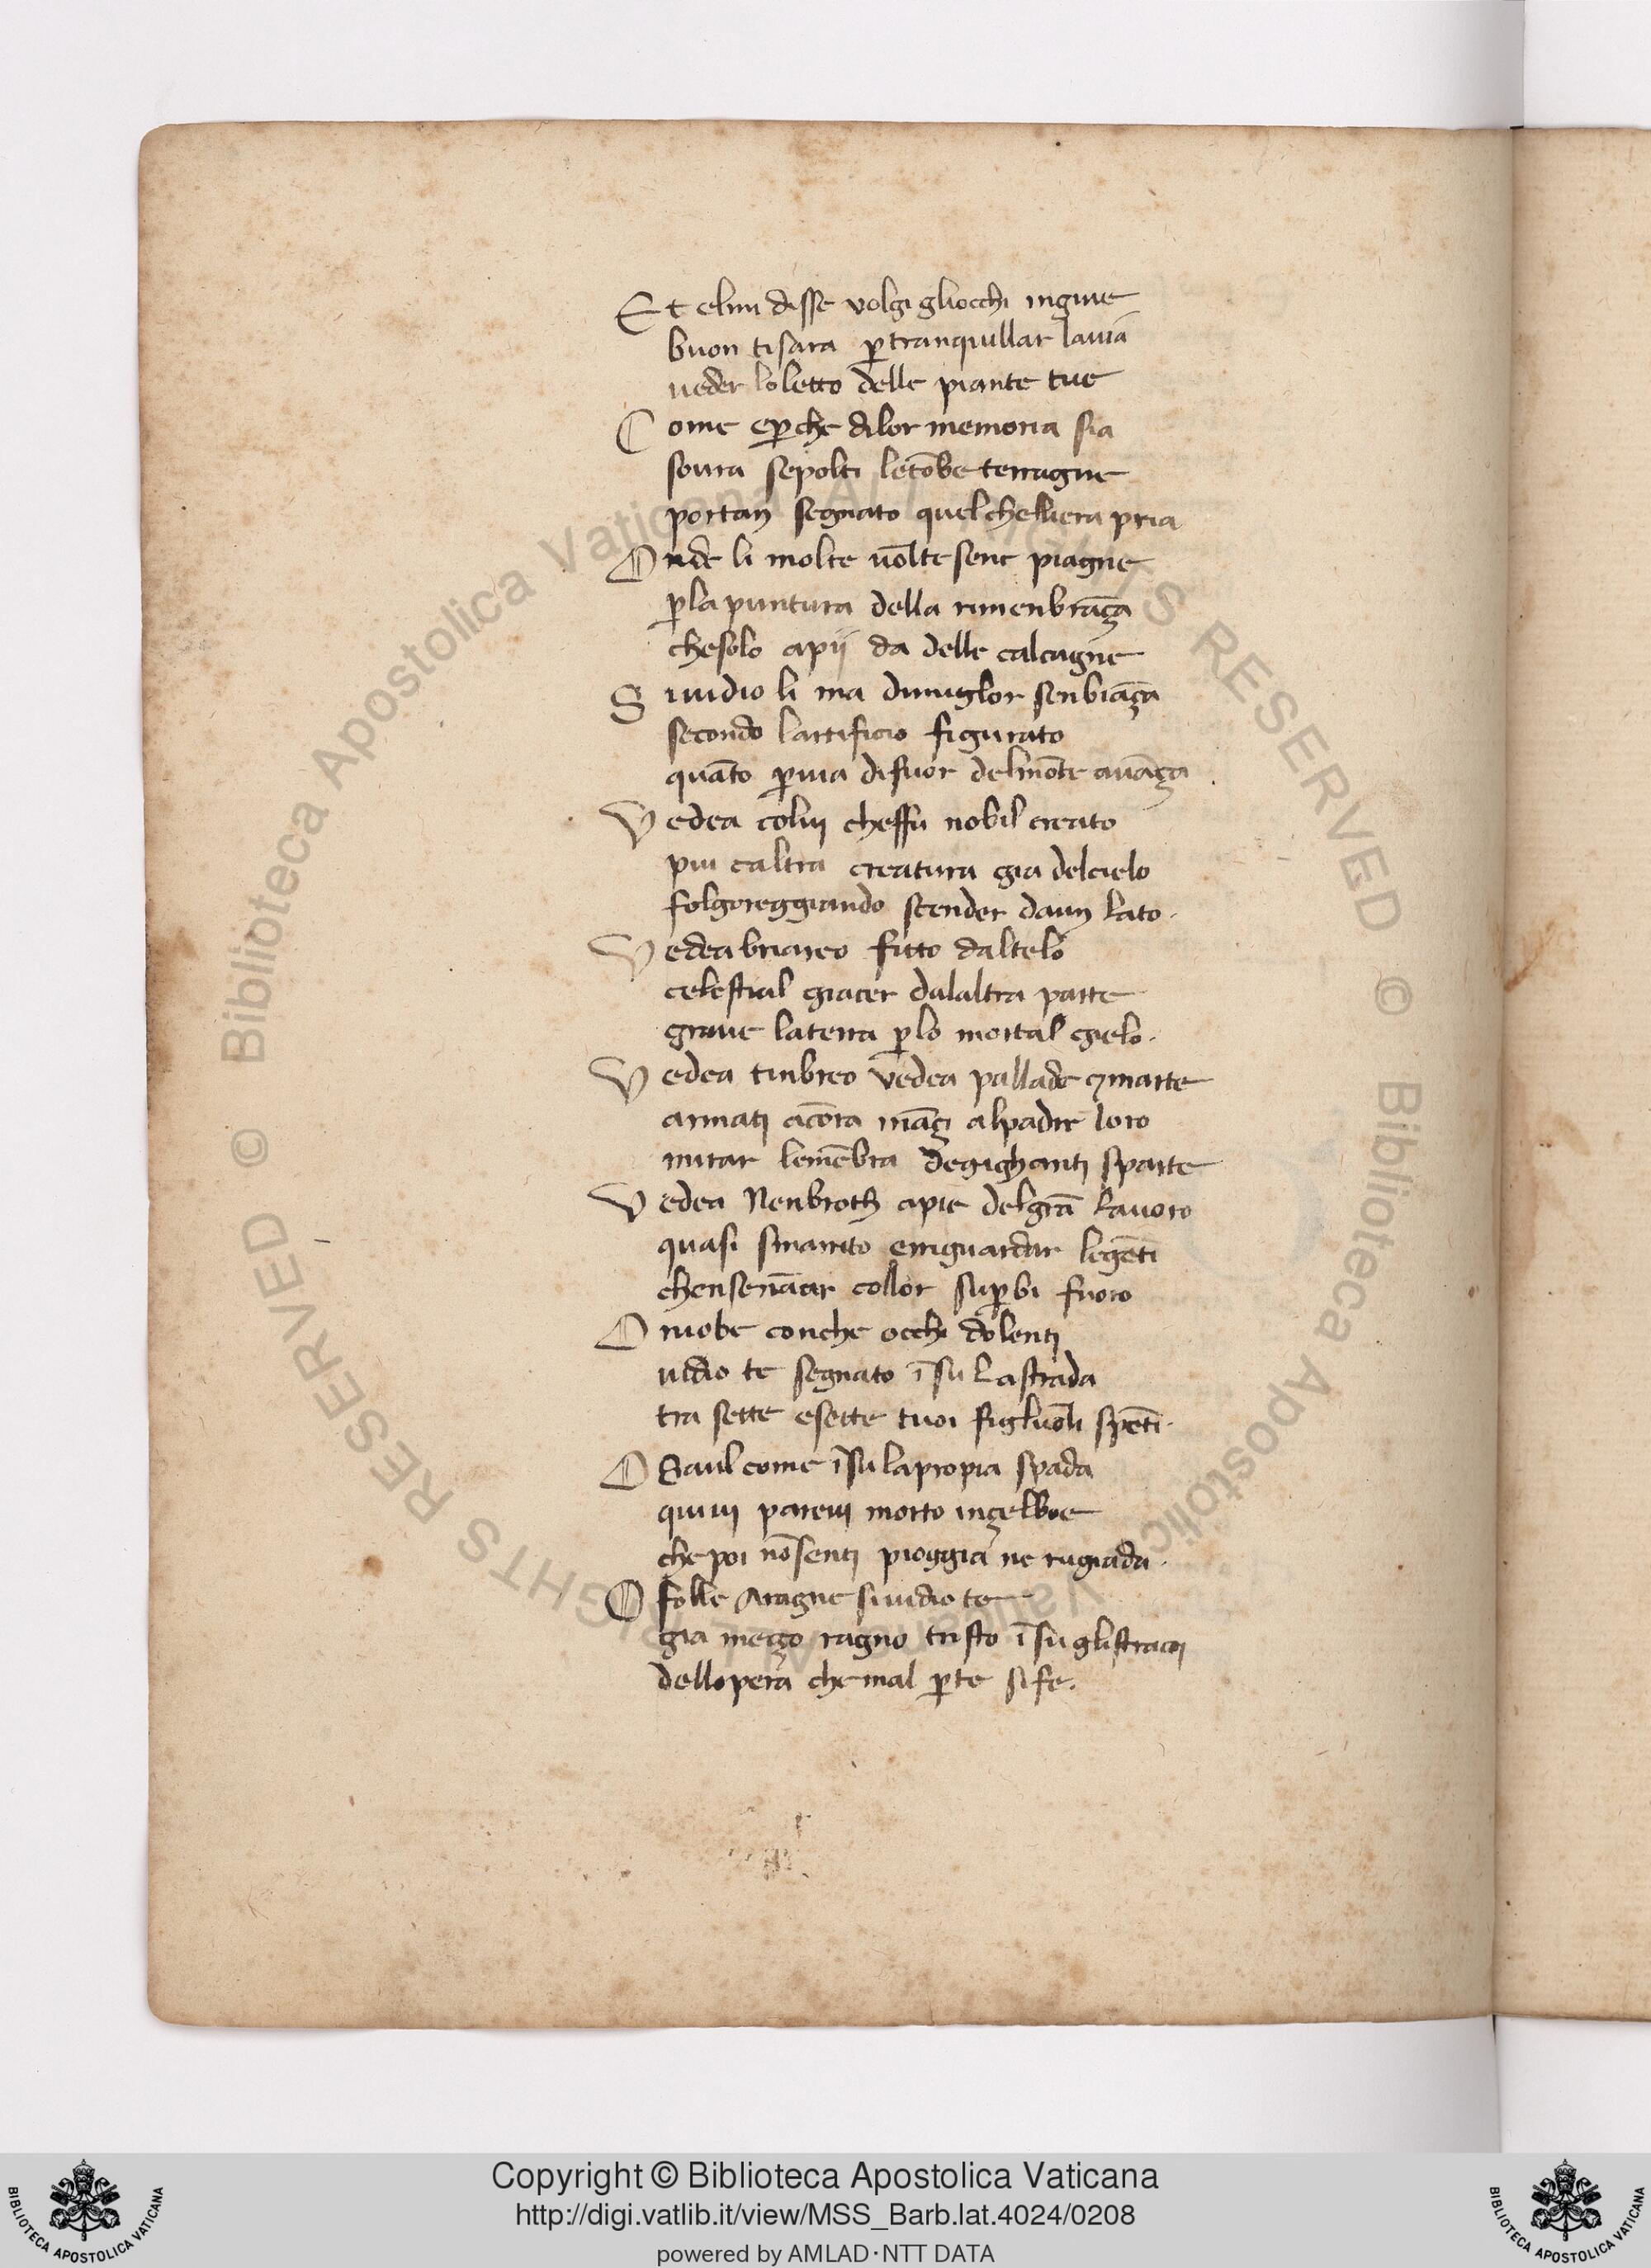 Et elmi disse volgi gliocchi ingiue
buon tisara ꝑtranquillar lauia
ueder loletto delle piante tue
Come eꝑche dilor memoria sia
soura sepolti letōbe terragne
portan segnato quelchellera pria
Onde li molte uolte senr piagne
ꝑla puntura della rimenbrāça
chesolo apij da delle calcagne
S iuidio li ma dimiglor senbiāça
secondo lartificio figurato
quāto ꝑuia difuor delmōte auāça
Vedea colui cheffu nobil creato
piu caltra creatura gia delcielo
folgoreggiando scender daun lato.
Vedea briareo fitto daltelo
celestial giacer dalaltra parte
graue laterra ꝑlo mortal gielo.
Vedea tinbreo vedea pallade ⁊marte
armati ācora ināçi alpadre loro
mirar lemēbra degighanti sparte
Vedea Nenbroth apie delgrā lauoro
quasi smarrito eriguardar legēti
chensenāar collor suꝑbi fuoro
O niobe conche occhi dolenti
uidio te segnato ī su lastrada
tra sette esette tuoi figluoli spēti.
O Saul come īsu lapropia spada
quiui pareui morto ingelboe
che poi nōsenti pioggia ne rugiada.
O folle Aragne siuidio te
gia meço ragno tristo ī su glistracci
dellopera che mal ꝑte sife.
Copyright © Biblioteca Apostolica Vaticana
http://digi.vatlib.it/view/MSS_Barb.lat.4024/0208
powered by AMLAD·NTT DATA
BIBLIOTECA APOSTOLICA VATICANA
BIBLIOTECA APOSTOLICA VATICANA
© Biblioteca Apostolica Vaticana ALL RIGHTS RESERVED
© Biblioteca Apostolica Vaticana ALL RIGHTS RESERVED